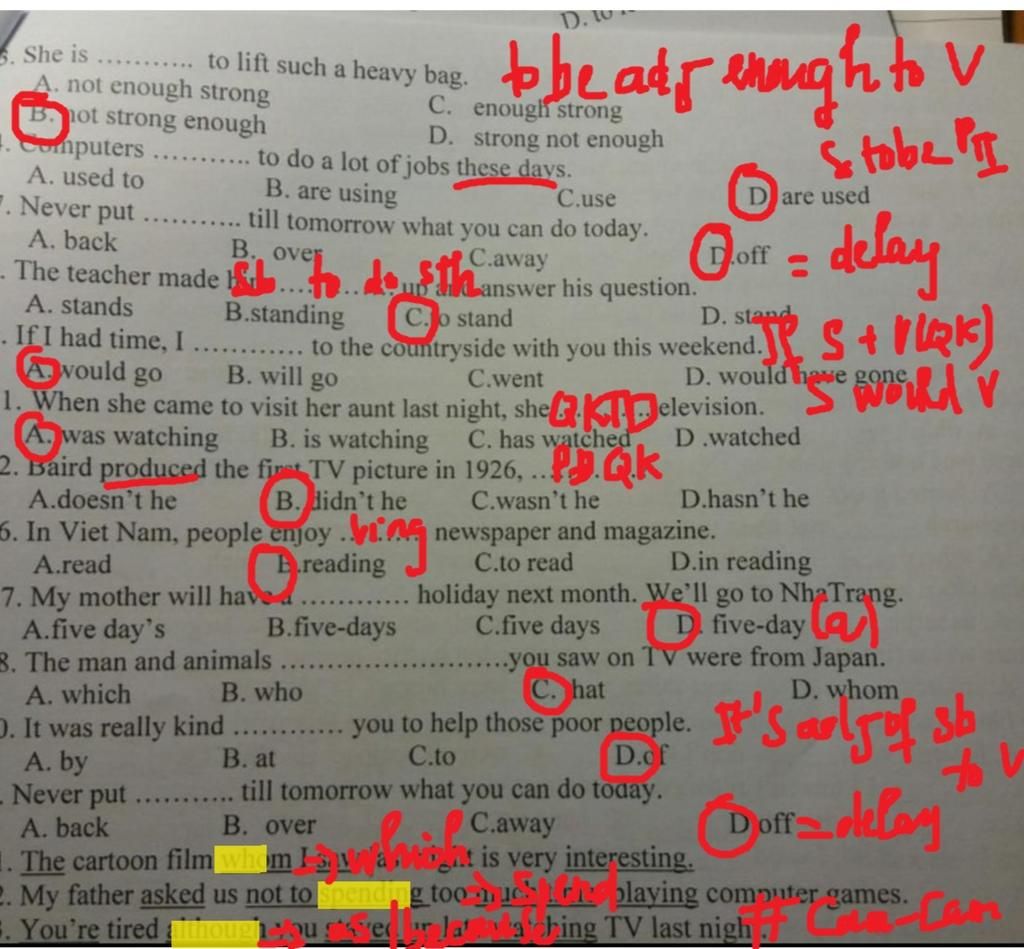 D. to
3. She is ........... to lift such a heavy bag. to be adj enough to V
A. not enough strong C. enough strong
B. not strong enough D. strong not enough
. Computers ........... to do a lot of jobs these days. S. tobe PII
A. used to B. are using C.use D are used
7. Never put ........... till tomorrow what you can do today.
A. back B. over C.away D.off = delay
. The teacher made sb to do sth up and answer his question.
A. stands B.standing C.to stand D. stand
. If I had time, I ............ to the countryside with you this weekend. If S + V(QK)
A.would go B. will go C.went D. would have gone S would V
1. When she came to visit her aunt last night, she QKTD elevision.
A. was watching B. is watching C. has watched D .watched
2. Baird produced the first TV picture in 1926, ... PD QK
A.doesn't he B. didn't he C.wasn't he D.hasn't he
6. In Viet Nam, people enjoy .Ving newspaper and magazine.
A.read B.reading C.to read D.in reading
7. My mother will have a ............ holiday next month. We'll go to NhaTrang.
A.five day's B.five-days C.five days D. five-day (a)
8. The man and animals .........................you saw on TV were from Japan.
A. which B. who C. that D. whom
0. It was really kind ............ you to help those poor people. It's adj of sb to V
A. by B. at C.to D.of
. Never put ........... till tomorrow what you can do today.
A. back B. over C.away D off = delay
1. The cartoon film whom I => which is very interesting.
2. My father asked us not to spending too => spend playing computer games.
3. You're tired although => as / because TV last night. # Cam-Cam